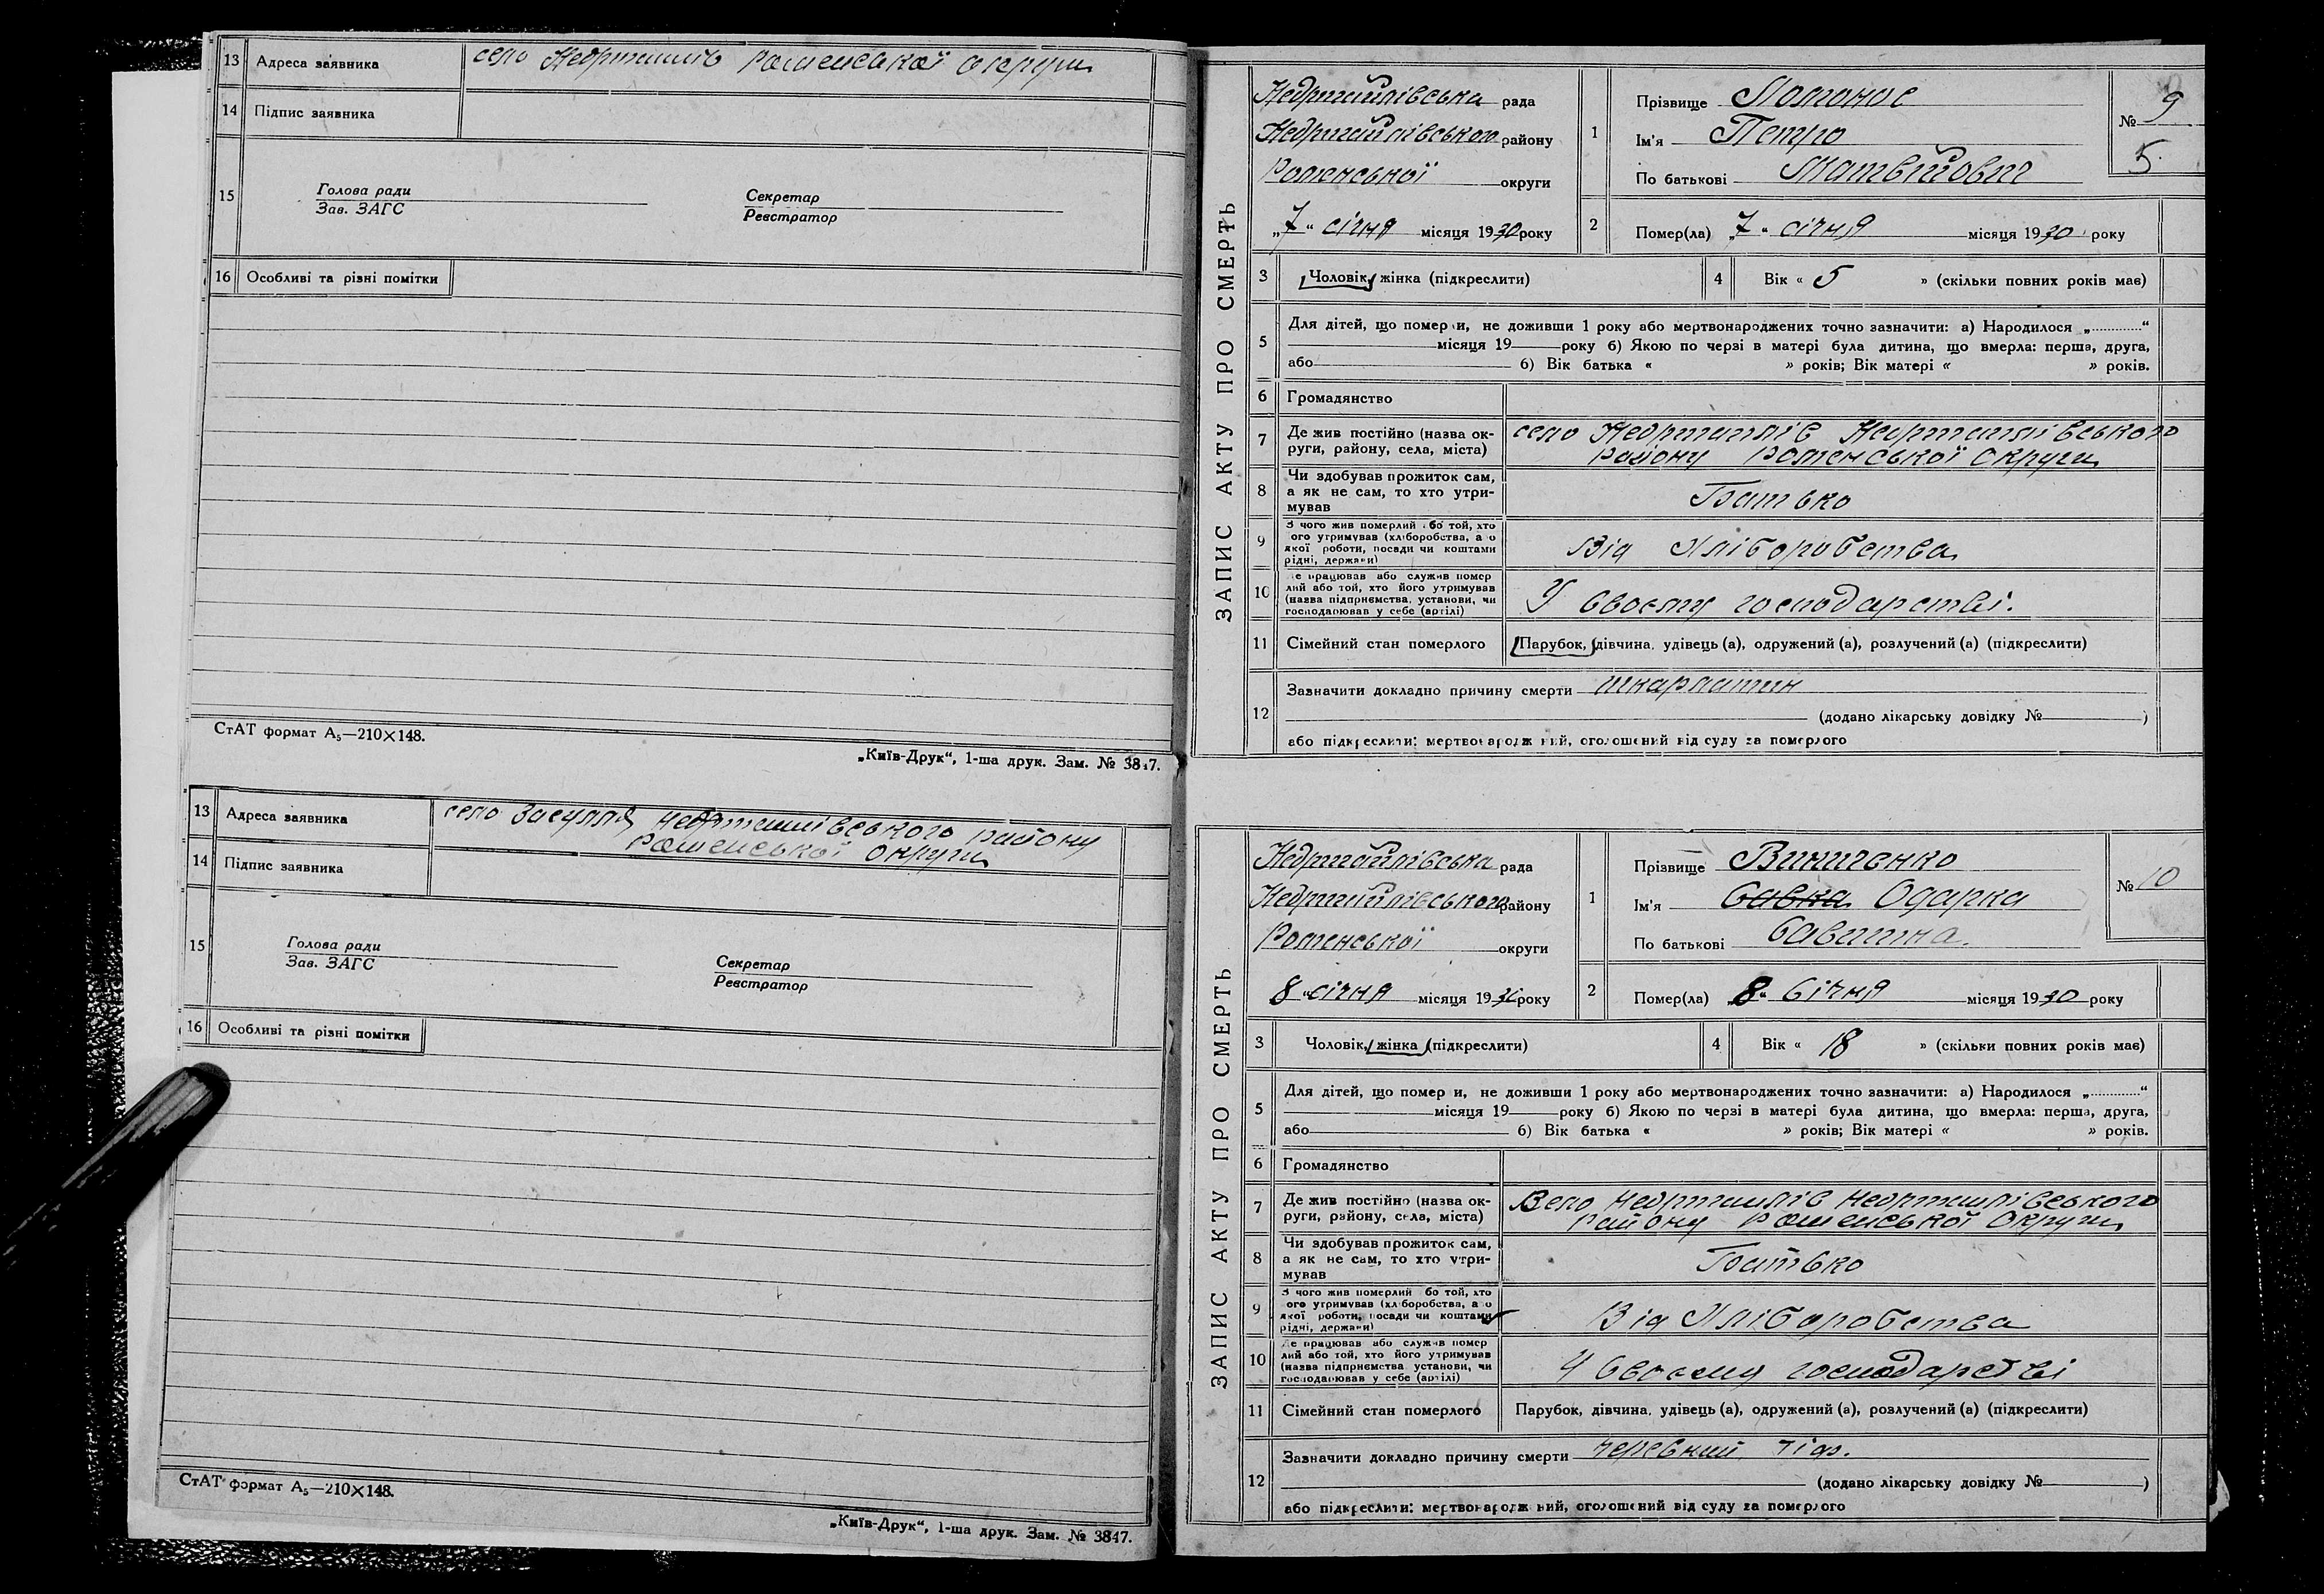 13 Адреса заявника село Недригайлів Роменської округи
14 Підпис заявника
15 Голова ради
Зав. ЗАГС
Секретар
Реєстратор
16 Особливі та різні помітки
СтАТ формат А₅—210×148.
„Київ-Друк“, 1-ша друк. Зам. № 3847.
13 Адреса заявника село Засулля Недригайлівського району
Роменської округи
14 Підпис заявника
15 Голова ради
Зав. ЗАГС
Секретар
Реєстратор
16 Особливі та різні помітки
СтАТ формат А₅—210×148.
„Київ-Друк“, 1-ша друк. Зам. № 3847.
ЗАПИС АКТУ ПРО СМЕРТЬ
Недригайлівська рада
Недригайлівського району
Роменської округи
„7“ січня місяця 1930 року
1 Прізвище Ломонос
Ім'я Петро
По батькові Матвійович
№ 9
5.
2 Помер(ла) „7“ січня місяця 1930 року
3 Чоловік, жінка (підкреслити)
4 Вік « 5 » (скільки повних років має)
5 Для дітей, що померли, не доживши 1 року або мертвонароджених точно зазначити: а) Народилося „............“
місяця 19 року б) Якою по черзі в матері була дитина, що вмерла: перша, друга,
або б) Вік батька « » років; Вік матері « » років.
6 Громадянство
7 Де жив постійно (назва ок-
руги, району, села, міста)
село Недригайлів Недригайлівського
району Роменської округи
8 Чи здобував прожиток сам,
а як не сам, то хто утри-
мував
Батько
9 З чого жив померлий або той, хто
його утримував (хліборобства, або
якої роботи, посади чи коштами
рідні, держави)
Від Хліборобства
10 Де працював або служив помер
лий або той, хто його утримував
(назва підприємства, установи, чи
господарював у себе (артілі)
У своєму господарстві.
11 Сімейний стан померлого Парубок, дівчина, удівець (а), одружений (а), розлучений (а) (підкреслити)
12 Зазначити докладно причину смерти шкарлатин
(додано лікарську довідку № )
або підкреслити: мертвонароджений, оголошений від суду за померлого
ЗАПИС АКТУ ПРО СМЕРТЬ
Недригайлівська рада
Недригайлівського району
Роменської округи
8 „січня місяця 1930 року
1 Прізвище Виниченко
Ім'я Савка Одарка
По батькові Савишна.
№ 10
2 Помер(ла) „8“ Січня місяця 1930 року
3 Чоловік, жінка (підкреслити)
4 Вік « 18 » (скільки повних років має)
5 Для дітей, що померли, не доживши 1 року або мертвонароджених точно зазначити: а) Народилося „............“
місяця 19 року б) Якою по черзі в матері була дитина, що вмерла: перша, друга,
або б) Вік батька « » років; Вік матері « » років.
6 Громадянство
7 Де жив постійно (назва ок-
руги, району, села, міста)
Село Недригайлів Недригайлівського
району Роменської Округи
8 Чи здобував прожиток сам,
а як не сам, то хто утри-
мував
Батько
9 З чого жив померлий або той, хто
його утримував (хліборобства, або
якої роботи, посади чи коштами
рідні, держави)
Від Хліборобства
10 Де працював або служив помер
лий або той, хто його утримував
(назва підприємства, установи, чи
господарював у себе (артілі)
У Своєму господарстві
11 Сімейний стан померлого Парубок, дівчина, удівець (а), одружений (а), розлучений (а) (підкреслити)
12 Зазначити докладно причину смерти черевний тіф.
(додано лікарську довідку № )
або підкреслити: мертвонароджений, оголошений від суду за померлого